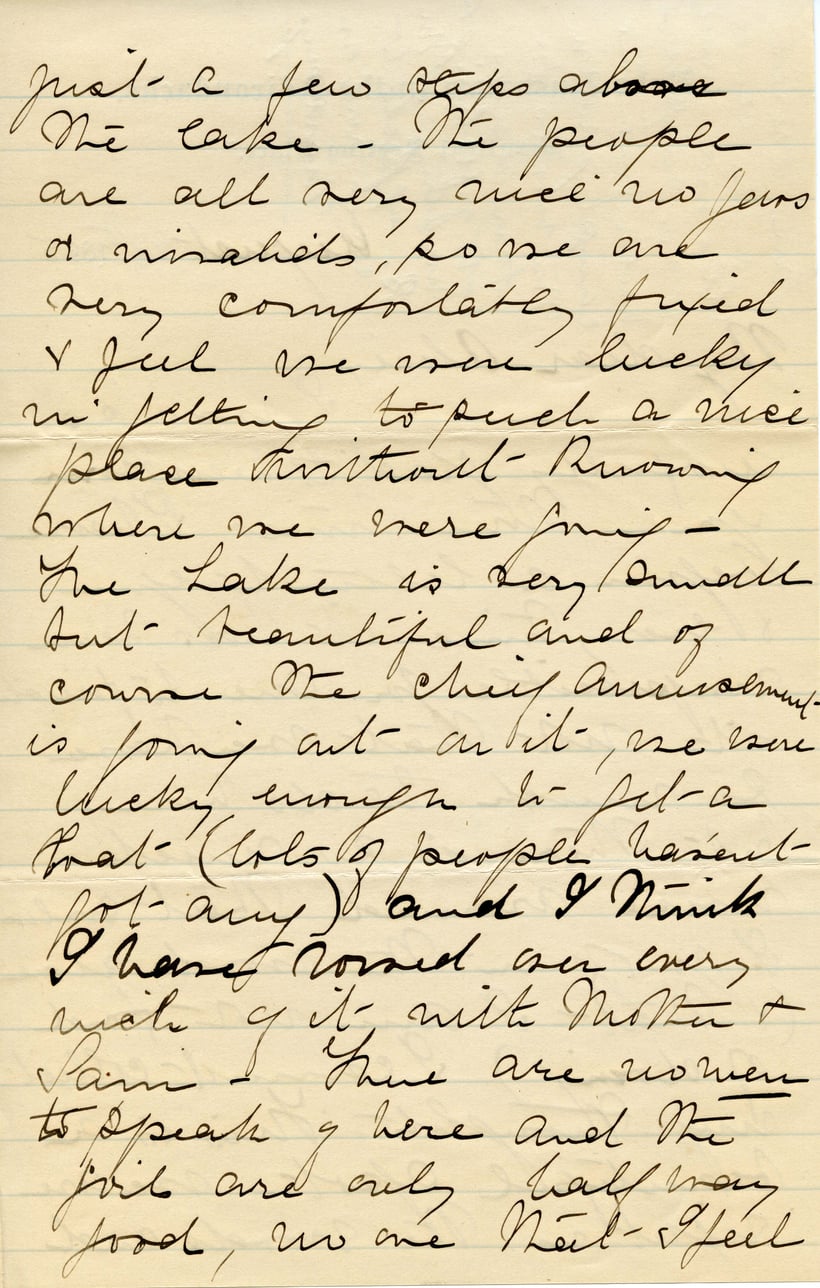 just a few steps above
the lake - The people
are all very nice no Jews
or invalids, so we are
very comfortably fixed
& feel we were lucky
in getting to such a nice
place without knowing
where we were going -
The Lake is very small
but beautiful and of
course the chief amusement
is going out on it, we were
lucky enough to get a
boat (lots of people haven't
got any) and I think
I have rowed over every
inch of it with Mother &
Sam - There are no men
to speak of here and the
girls are only half way
good, no one that I feel